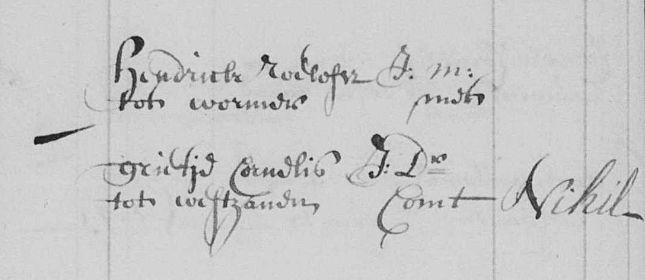 Hendrick Roelofsz J: m:
tot wormer met
grietjd Cornelis J: Dr
tot westzanen Comt Nihil